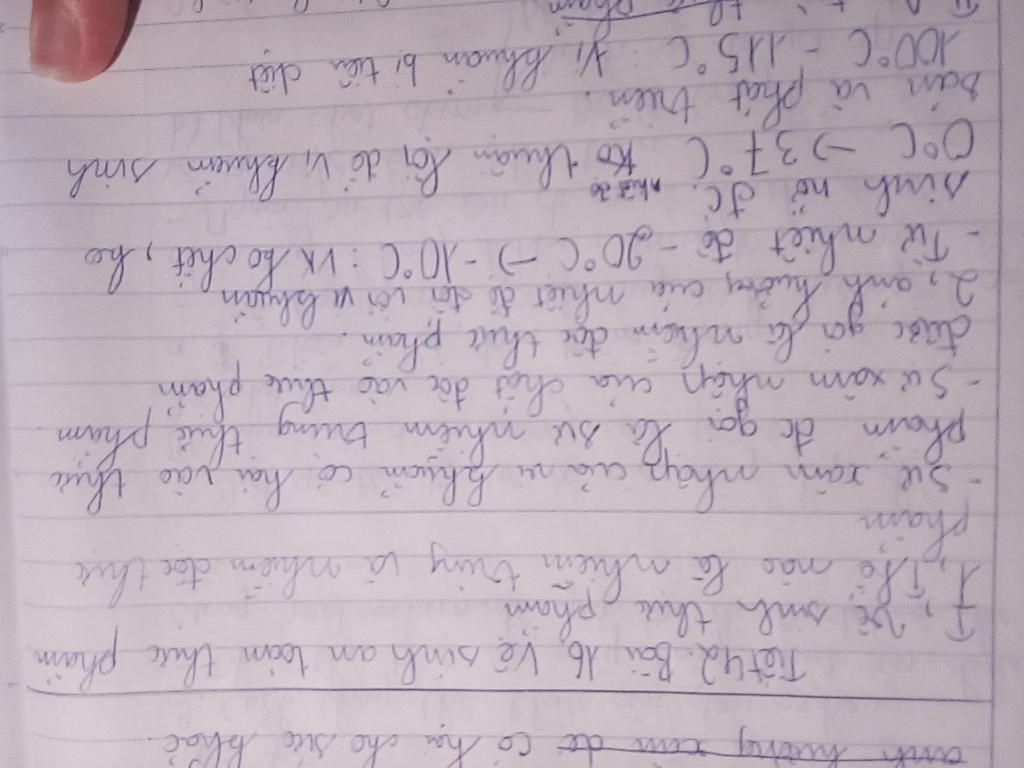 ảnh hưởng xấm đế có hại cho sức khỏe.
Tiết 42 Bài 16 Vệ sinh an toàn thực phẩm
I, Vệ sinh thực phẩm
1, Thế nào là nhiễm trùng và nhiễm độc thực
phẩm
- Sự xâm nhập của vi khuẩn có hại vào thực
phẩm đc gọi là sự nhiễm trùng thực phẩm.
- Sự xâm nhập của chất độc vào thực phẩm
được gọi là nhiễm độc thực phẩm.
2, ảnh hưởng của nhiệt độ đối với vi khuẩn
- Từ nhiệt độ -20°C → -10°C : VK ko chết, ko
sinh nở đc.
0°C → 37°C Ko thuận lợi để vi khuẩn sinh
sản và phát triển.
100°C - 115°C : Vi khuẩn bị tiêu diệt